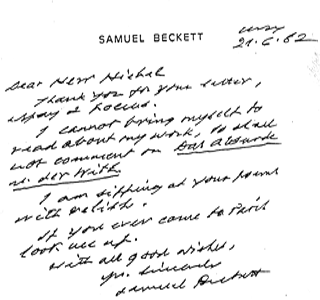 SAMUEL BECKETT
Ussy
21.6.82
Dear Herr Michel
Thank you for your letter,
essay & poems.
I cannot bring myself to
read about my work, so shall
not comment on Das Absurde
u. der Witz.
I am sipping at your poems
with relish.
If you ever come to Paris
look me up.
With all good wishes,
yrs. sincerely
Samuel Beckett